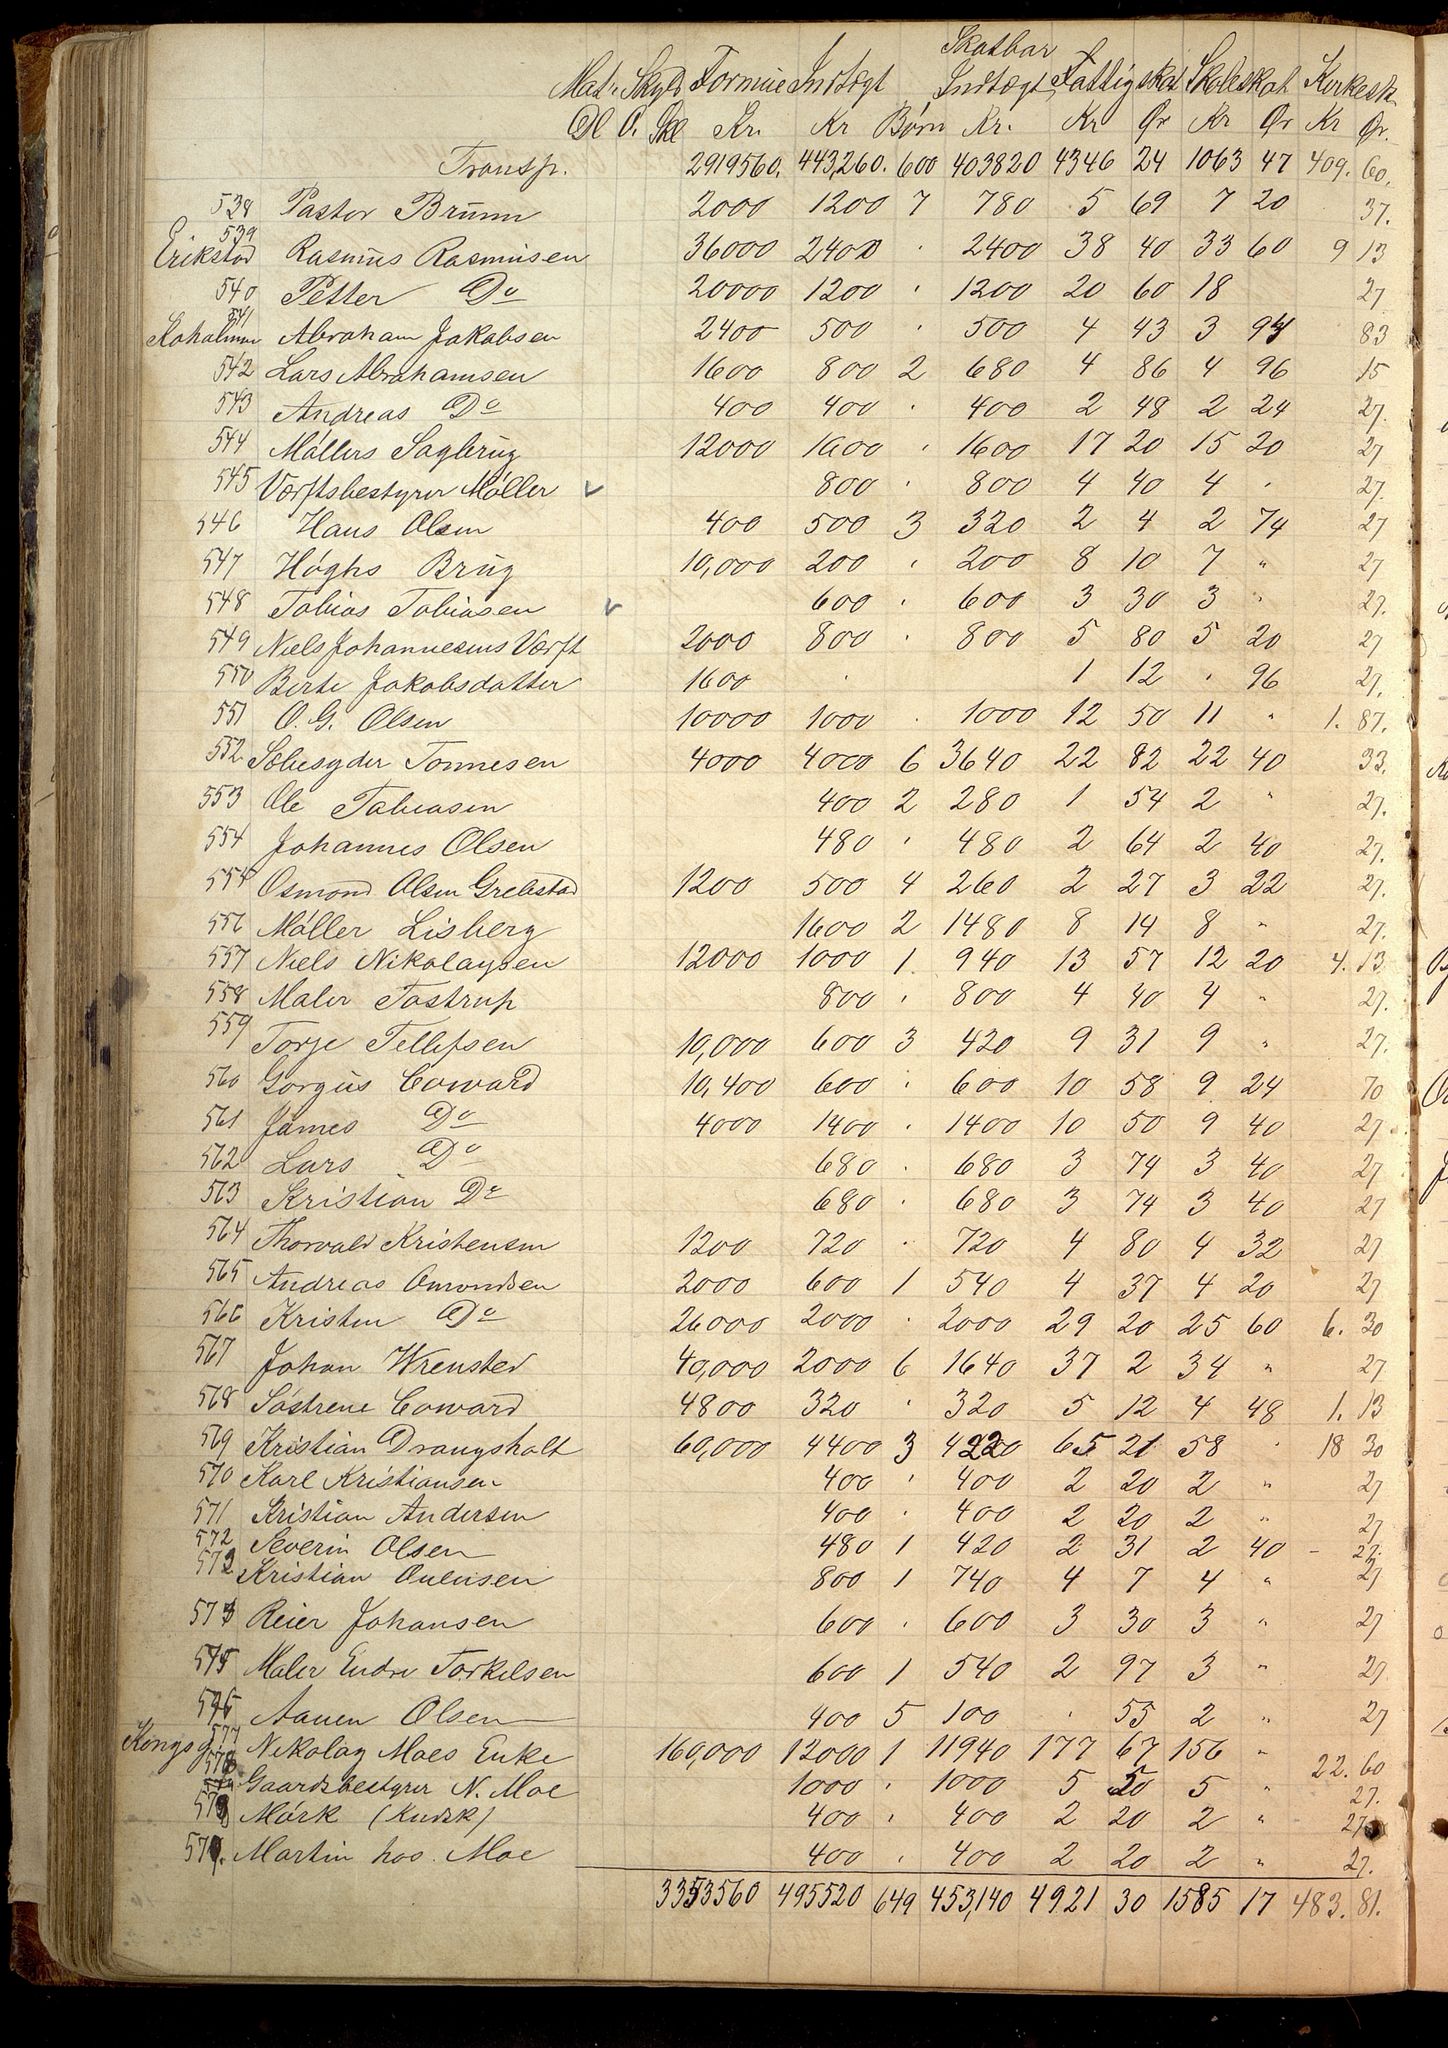 Skatbar
Mat. Skyld Formue Indtægt Indtægt Fattigskat Skoleskat Kirkesk.
Dl O. Skl Kr. Kr Børn Kr. Kr Ør Kr Ør Kr Ør.
Transp. 2919560. 443,260. 600 403820 4346 24 1063 47 409. 60.
538 Pastor Brunn 2000 1200 7 780 5 69 7 20 37.
539
Erikstad Rasmus Rasmusen 36000 2400 " 2400 38 40 33 60 9 13
540 Petter Do 20000 1200 " 1200 20 60 18 27
541
Kaholmen Abraham Jakobsen 2400 500 " 500 4 43 3 94 83
542 Lars Abrahamsen 1600 800 2 680 4 86 4 96 15
543 Andreas Do 400 400 " 400 2 48 2 24 27.
544 Møllers Sagbrug 12000 1600 " 1600 17 20 15 20 27
545 Værftsbestyrer Møller 800 " 800 4 40 4 " 27.
546 Hans Olsen 400 500 3 320 2 4 2 74 27
547 Høghs Brug 10,000 200 " 200 8 10 7 " 27
548 Tobias Tobiasen 600 " 600 3 30 3 " 27.
549 Niels Johannesens Værft 2000 800 " 800 5 80 5 20 27
550 Berte Jakobsdatter 1600 " 1 12 " 96 27.
551 O. G. Olsen 10000 1000 " 1000 12 50 11 " 1. 87.
552 Sæbesyder Tønnesen 4000 4000 6 3640 22 82 22 40 33.
553 Ole Tobiasen 400 2 280 1 54 2 " 27.
554 Johannes Olsen 480 " 480 2 64 2 40 27.
554 Osmond Olsen Grebstad 1200 500 4 260 2 27 3 22 27.
556 Møller Lisberg 1600 2 1480 8 14 8 " 27.
557 Niels Nikolaysen 12000 1000 1 940 13 57 12 20 4. 13
558 Maler Tostrup 800 " 800 4 40 4 " 27.
559 Torje Tellefsen 10,000 600 3 420 9 31 9 " 27.
560 Gorgus Coward 10,400 600 " 600 10 58 9 24 70
561 James Do 4000 1400 " 1400 10 50 9 40 27.
562 Lars Do 680 " 680 3 74 3 40 27
563 Kristian Do 680 " 680 3 74 3 40 27
564 Thorvald Kristensen 1200 720 " 720 4 80 4 32 27
565 Andreas Omondsen 2000 600 1 540 4 37 4 20 27
566 Kristen Do 26000 2000 " 2000 29 20 25 60 6. 30
567 Johan Wrensted 40,000 2000 6 1640 37 2 34 " 27
568 Søstrene Coward 4800 320 " 320 5 12 4 48 1. 13
569 Kristian Drangsholt 60,000 4400 3 4220 65 21 58 " 18 30
570 Karl Kristiansen 400 " 400 2 20 2 " 27
571 Kristian Andersen 400 " 400 2 20 2 " 27
572 Severin Olsen 480 1 420 2 31 2 40 - 27.
572 Kristian Ouensen 800 1 740 4 7 4 " 27
573 Reier Johansen 600 " 600 3 30 3 " 27
575 Maler Endre Torkelsen 600 1 540 2 97 3 " 27.
576 Aanen Olsen 400 5 100 " 55 2 " 27
Kongsg. 577 Nikolay Moes Enke 160,000 12000 1 11940 177 67 156 " 22. 60
578 Gaardsbestyrer N. Moe 1000 " 1000 5 50 5 " 27.
578 Mørk (Kudsk) 400 " 400 2 20 2 " 27
579. Martin hos. Moe 400 " 400 2 20 2 " 27.
3353560 495520 649 453,140 4921 30 1585 17 483. 81.